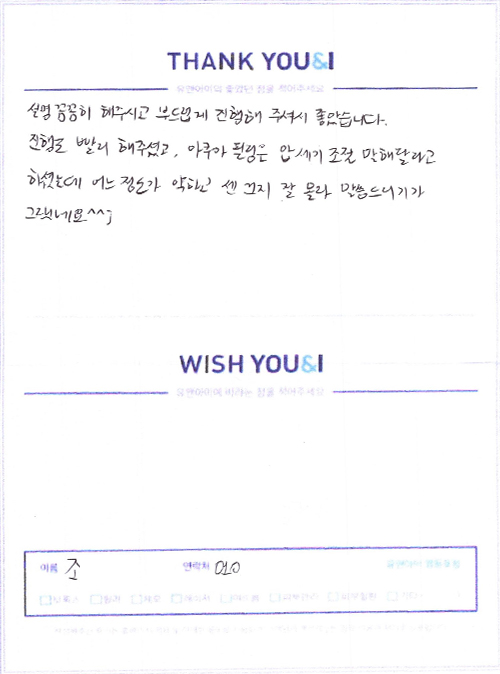 THANK YOU&I
유앤아이의 좋았던 점을 적어주세요
설명 꼼꼼히 해주시고 부드럽게 진행해 주셔서 좋았습니다.
진행도 빨리 해주셨고, 아쿠아 필링은 압 세기 조절 말해달라고
하셨는데 어느 정도가 약하고 센 건지 잘 몰라 말씀드리기가
그랬네요^^;
WISH YOU&I
유앤아이에 바라는 점을 적어주세요
이름 조 연락처 010 유앤아이
보톡스 필러 제모 레이저 여드름 기타